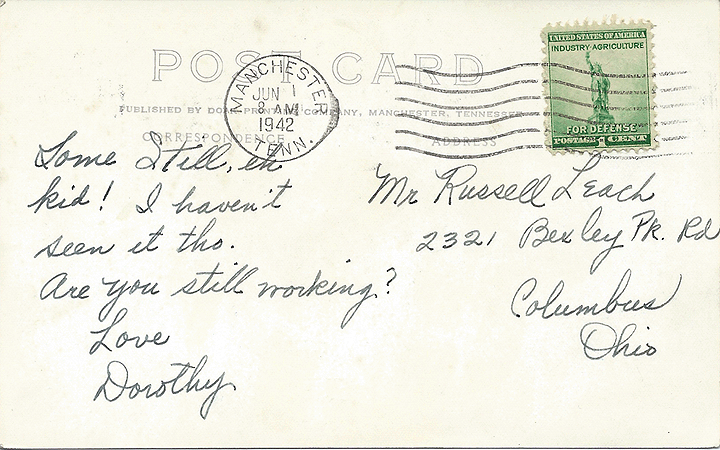 POST CARD
MANCHESTER
JUN 1
8 AM
1942
TENN.
UNITED STATES OF AMERICA
INDUSTRY·AGRICULTURE
FOR DEFENSE
POSTAGE 1 CENT
PUBLISHED BY PRINTING COMPANY, MANCHESTER, TENNESSEE
CORRESPONDENCE
ADDRESS
Some Still, eh
kid! I haven't
seen it tho.
Are you still working?
Love
Dorothy
Mr Russell Leach
2321 Bexley Pk. Rd
Columbus
Ohio